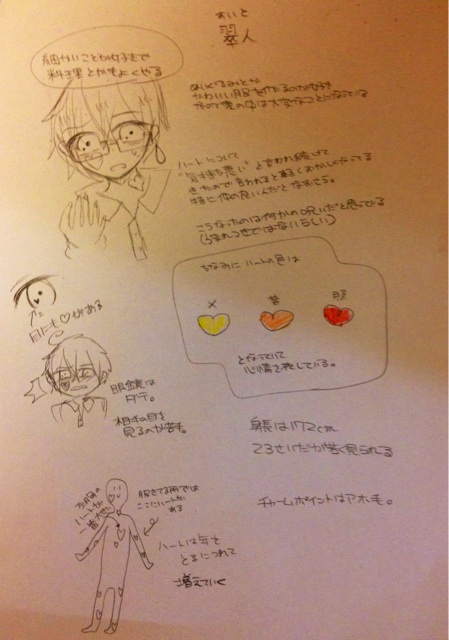 すいと
翠人
細かいことが好きで
料理とかもよくやる
ぬいぐるみとか
かわいい服を作るのが好き
なので家の中は大変なことになっている
ハートについて
"気持ち悪い"と言われ続けて
きたので言われると軽くおかしくなってる
特に体の良いんだとなおさら。
こうなったのは何かの呪いだと思ってる
(うまれつきではないらしい)
ちなみにハートの色は
となっていて
心情を表している。
目にも♡がある
眼鏡は
ダテ。
相手の目を
見るのが苦手。
身長は172cm
23さいだが若く見られる
チャームポイントはアホ毛。
服きてる所では
ここにハートが
ある
ハートは年を
とるにつれて
増えていく